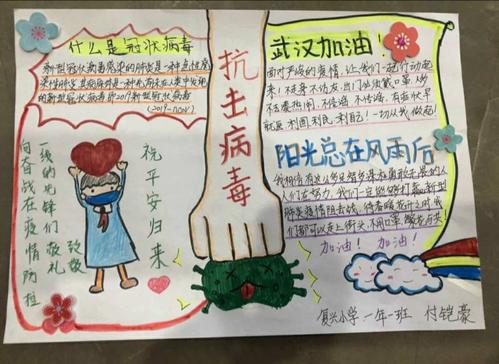 什么是冠状病毒
新型冠状病毒感染的肺炎是一种急性感
染性肺炎其病原体是一种先前未在人类中发现
的新型冠状病毒即2019新型冠状病毒
(2019-nCoV)
向奋战在疫情防控
一线的先锋们敬礼
致敬
祝平安归来
抗击病毒
武汉加油!
面对严峻的疫情,让我们一起行动起
来!不串门不访友,出门必须戴口罩,少
不去凑热闹,不信谣不传谣,有症状早
就医利国利民,利自己!一切从我做起!
阳光总在风雨后
我相信有这么多
人们在努力,我们一定能够打赢新型
肺炎疫情阻击战,待春暖花开之时我
们都可以走上街头,不用口罩
加油!加油!
复兴小学一年一班 付铠豪